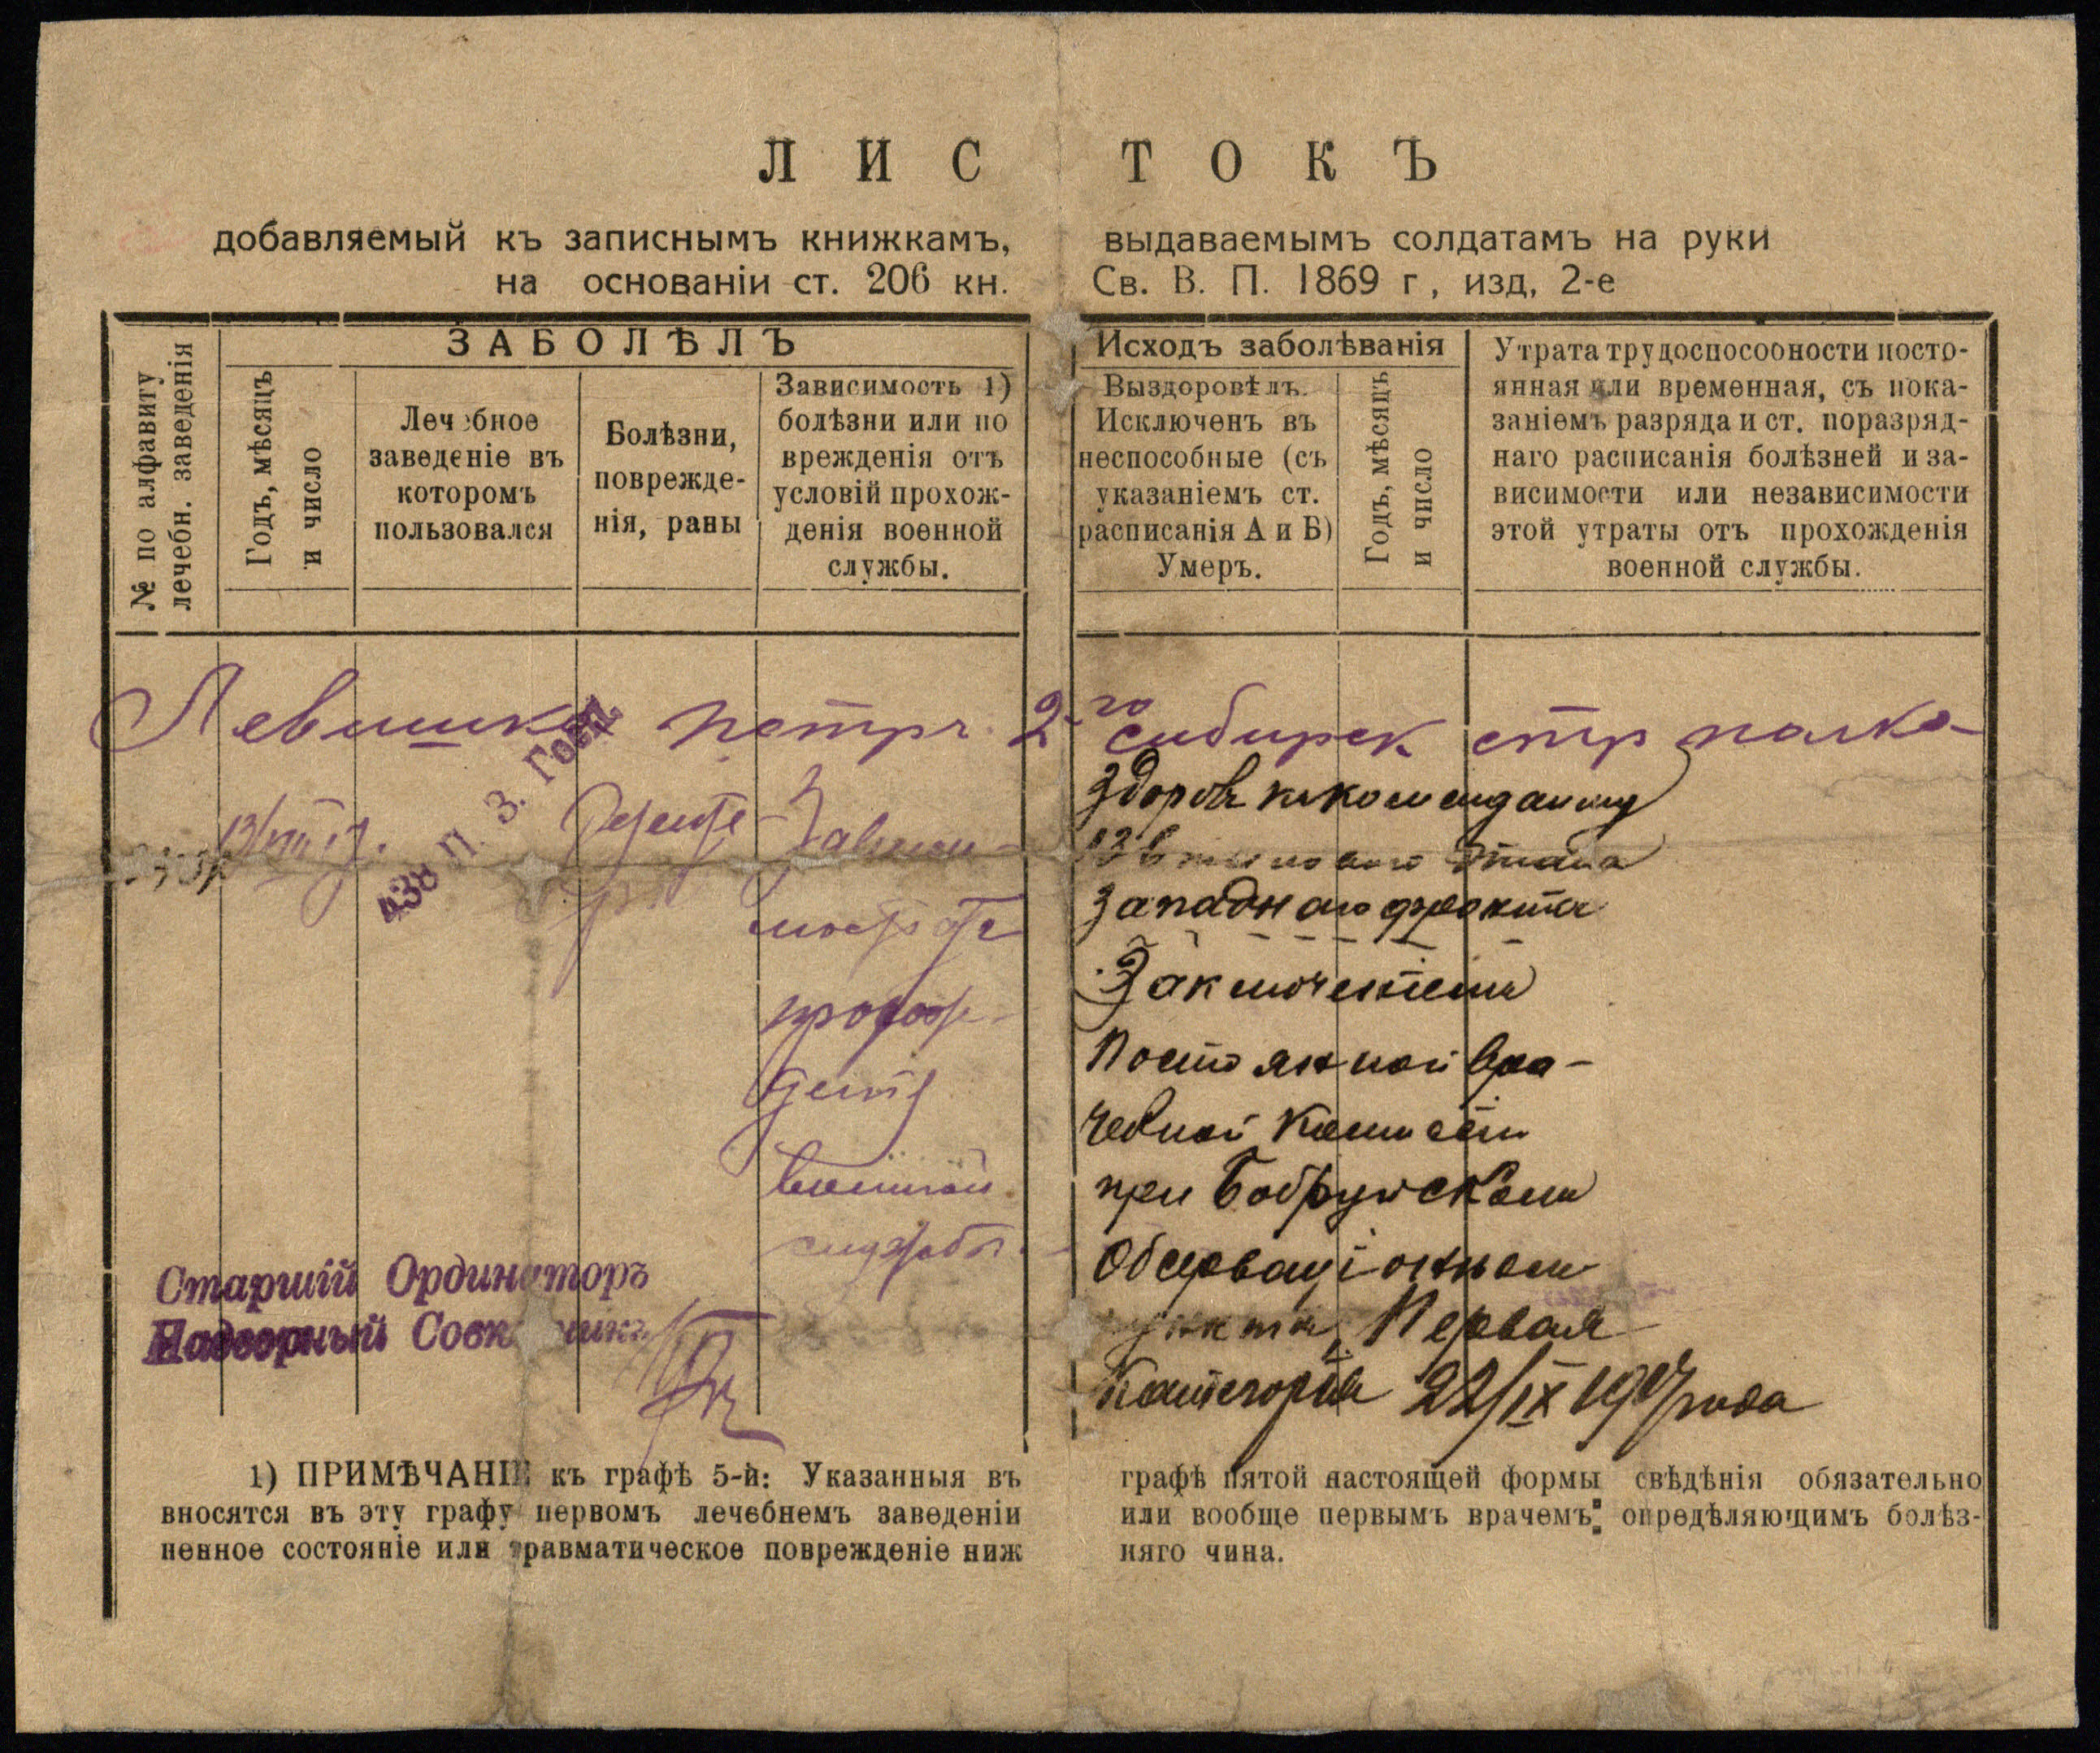 ЛИСТОКЪ
добавляемый къ записнымъ книжкамъ, выдаваемымъ солдатамъ на руки
на основаніи ст. 206 кн. Св. В. П. 1869 г, изд, 2-е
№ по алфавиту
лечебн. заведенія
ЗАБОЛѢЛЪ
Годъ, мѣсяцъ
и число
Лечебное
заведеніе въ
которомъ
пользовался
Болѣзни,
поврежде-
нія, раны
Зависимость 1)
болѣзни или по
врежденія отъ
условій прохож-
денія военной
службы.
Исходъ заболѣванія
Выздоровѣлъ.
Исключенъ въ
неспособные (съ
указаніемъ ст.
расписанія А и Б)
Умеръ.
Годъ, мѣсяцъ
и число
Утрата трудоспособности посто-
янная или временная, съ пока-
заніемъ разряда и ст. поразряд-
наго расписанія болѣзней и за-
висимости или независимости
этой утраты отъ прохожденія
военной службы.
Петръ 2-го сибирск стр полка
13/VIII 17.
438 П. З. Госп
Зависи-
мость отъ
прохож-
денія
военной
службы.
Здоровъ къ коменданту
этапа
Западнаго фронта
Заключеніемъ
Постоянной вра-
чебной комисіи
при Бобруйскомъ
Обсерваціонном
пункте, Первая
категорія 22/IX 1917 года
Старшій Ординаторъ
Надворный Совѣтникъ
1) ПРИМѢЧАНІЕ къ графѣ 5-й: Указанныя въ графѣ пятой настоящей формы свѣдѣнія обязательно
вносятся въ эту графу первомъ лечебнемъ заведеніи или вообще первымъ врачемъ: опредѣляющимъ болѣз-
ненное состояніе или травматическое поврежденіе ниж няго чина.